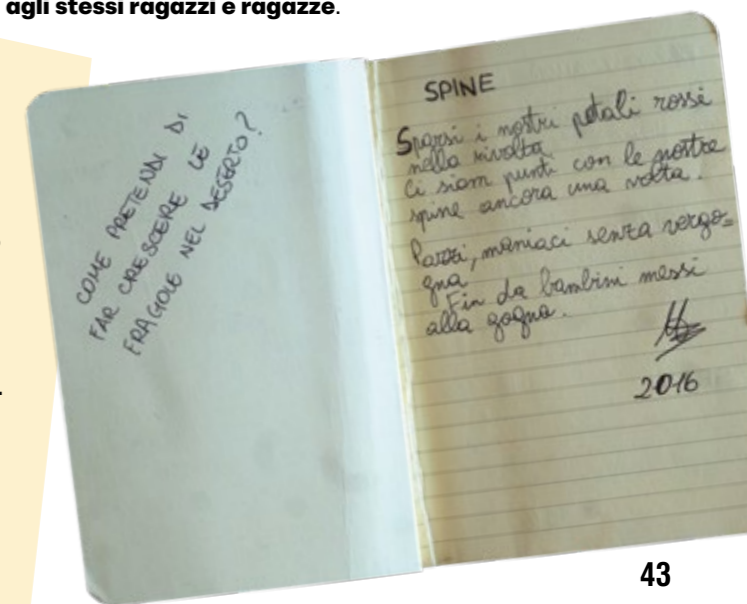 agli stessi ragazzi e ragazze.
COME PRETENDI DI
FAR CRESCERE LE
FRAGOLE NEL DESERTO?
SPINE
Sparsi i nostri petali rossi
nella rivolta
Ci siam punti con le nostre
spine ancora una volta.
Pazzi, maniaci senza vergo=
gna
Fin da bambini messi
alla gogna.
2016
43